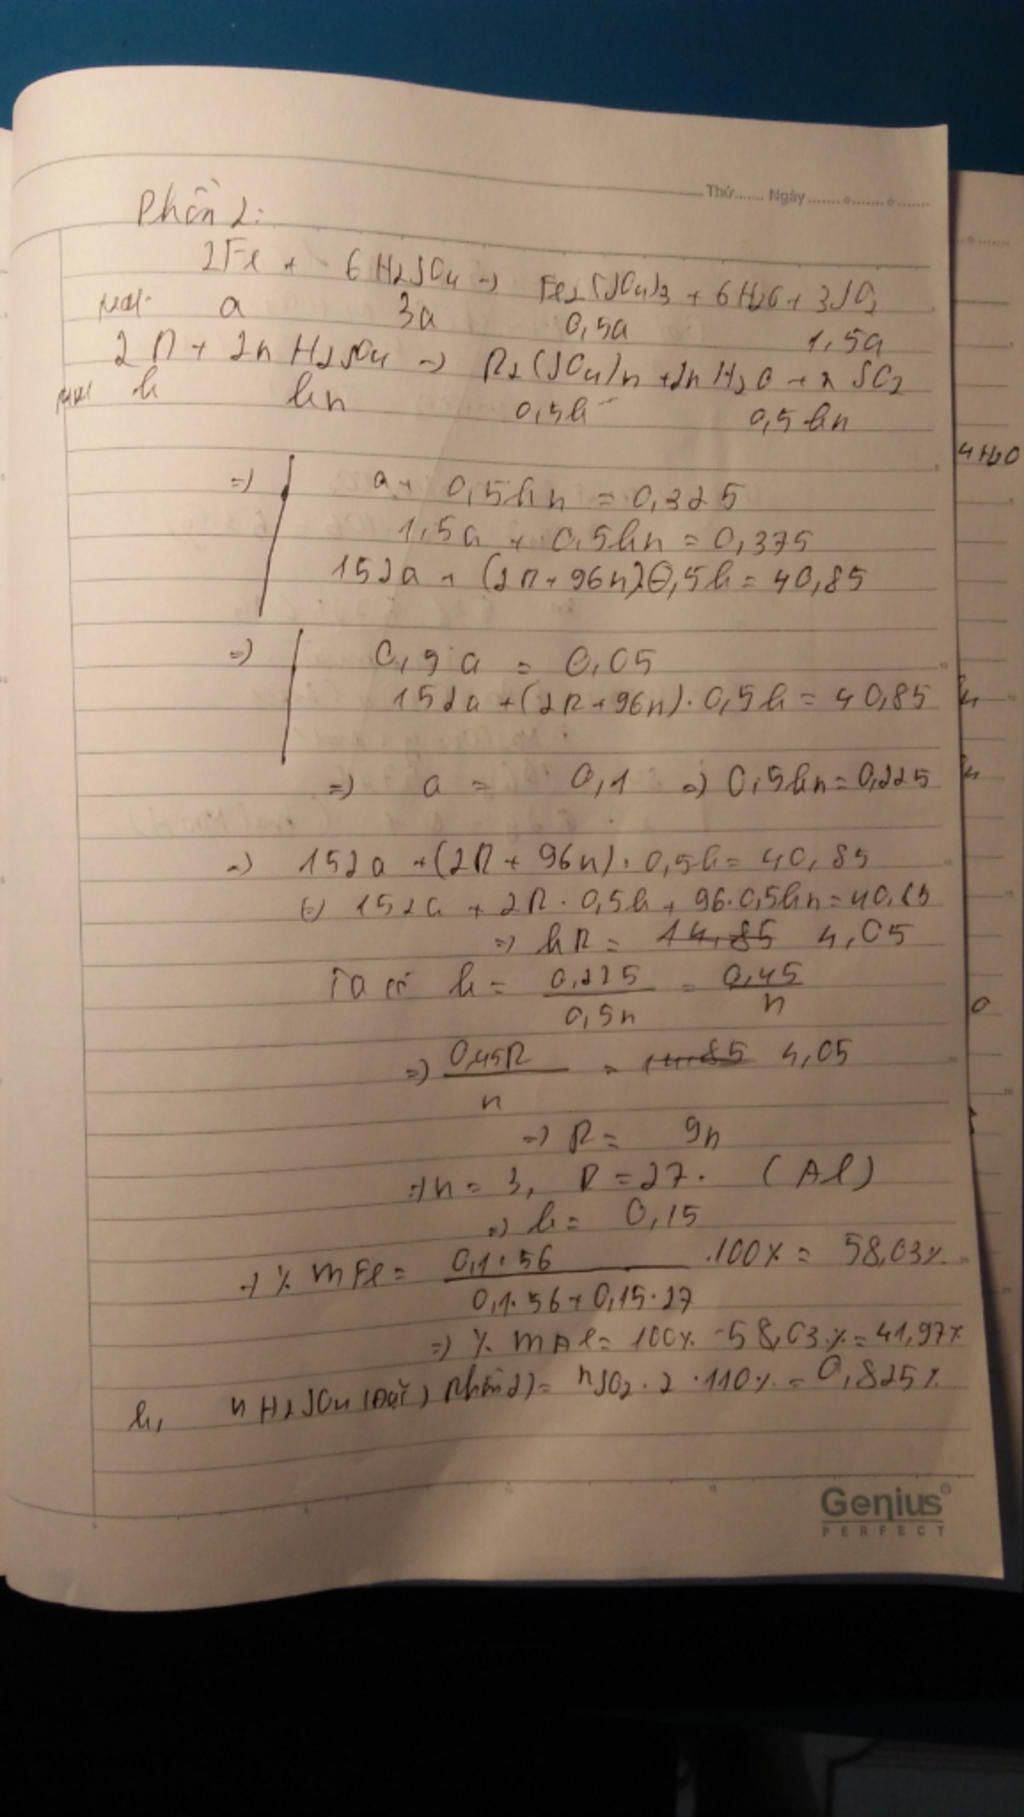 Thứ....... Ngày
Phần 2:
2Fe + 6H2SO4 → Fe2(SO4)3 + 6H2O + 3SO2
mol a 3a 0,5a 1,5a
2R + 2n H2SO4 → R2(SO4)n + 2n H2O + n SO2
mol b bn 0,5b 0,5bn
4H2O
=) a + 0,5bn = 0,325
1,5a + 0,5bn = 0,375
152a + (2R + 96n)0,5b = 40,85
=) 0,5a = 0,05
152a + (2R + 96n). 0,5b = 40,85
=) a = 0,1 =) 0,5bn = 0,225
=) 152a + (2R + 96n). 0,5b = 40,85
(=) 152a + 2R . 0,5b + 96.0,5bn = 40,85
=) bR = 14,85 4,05
Ta có b = 0,225 / 0,5n = 0,45 / n
=) 0,45R / n = 14,85 4,05
=) R = 9n
=) n = 3, R = 27. (Al)
=) b = 0,15
=) % mFe = 0,1.56 / 0,1.56 + 0,15.27 .100% = 58,03%
=) % mAl = 100% - 58,03% = 41,97%
b, nH2SO4 (Đặc) phần 2) = nSO2 . 2 . 110% = 0,825%
Genius
PERFECT